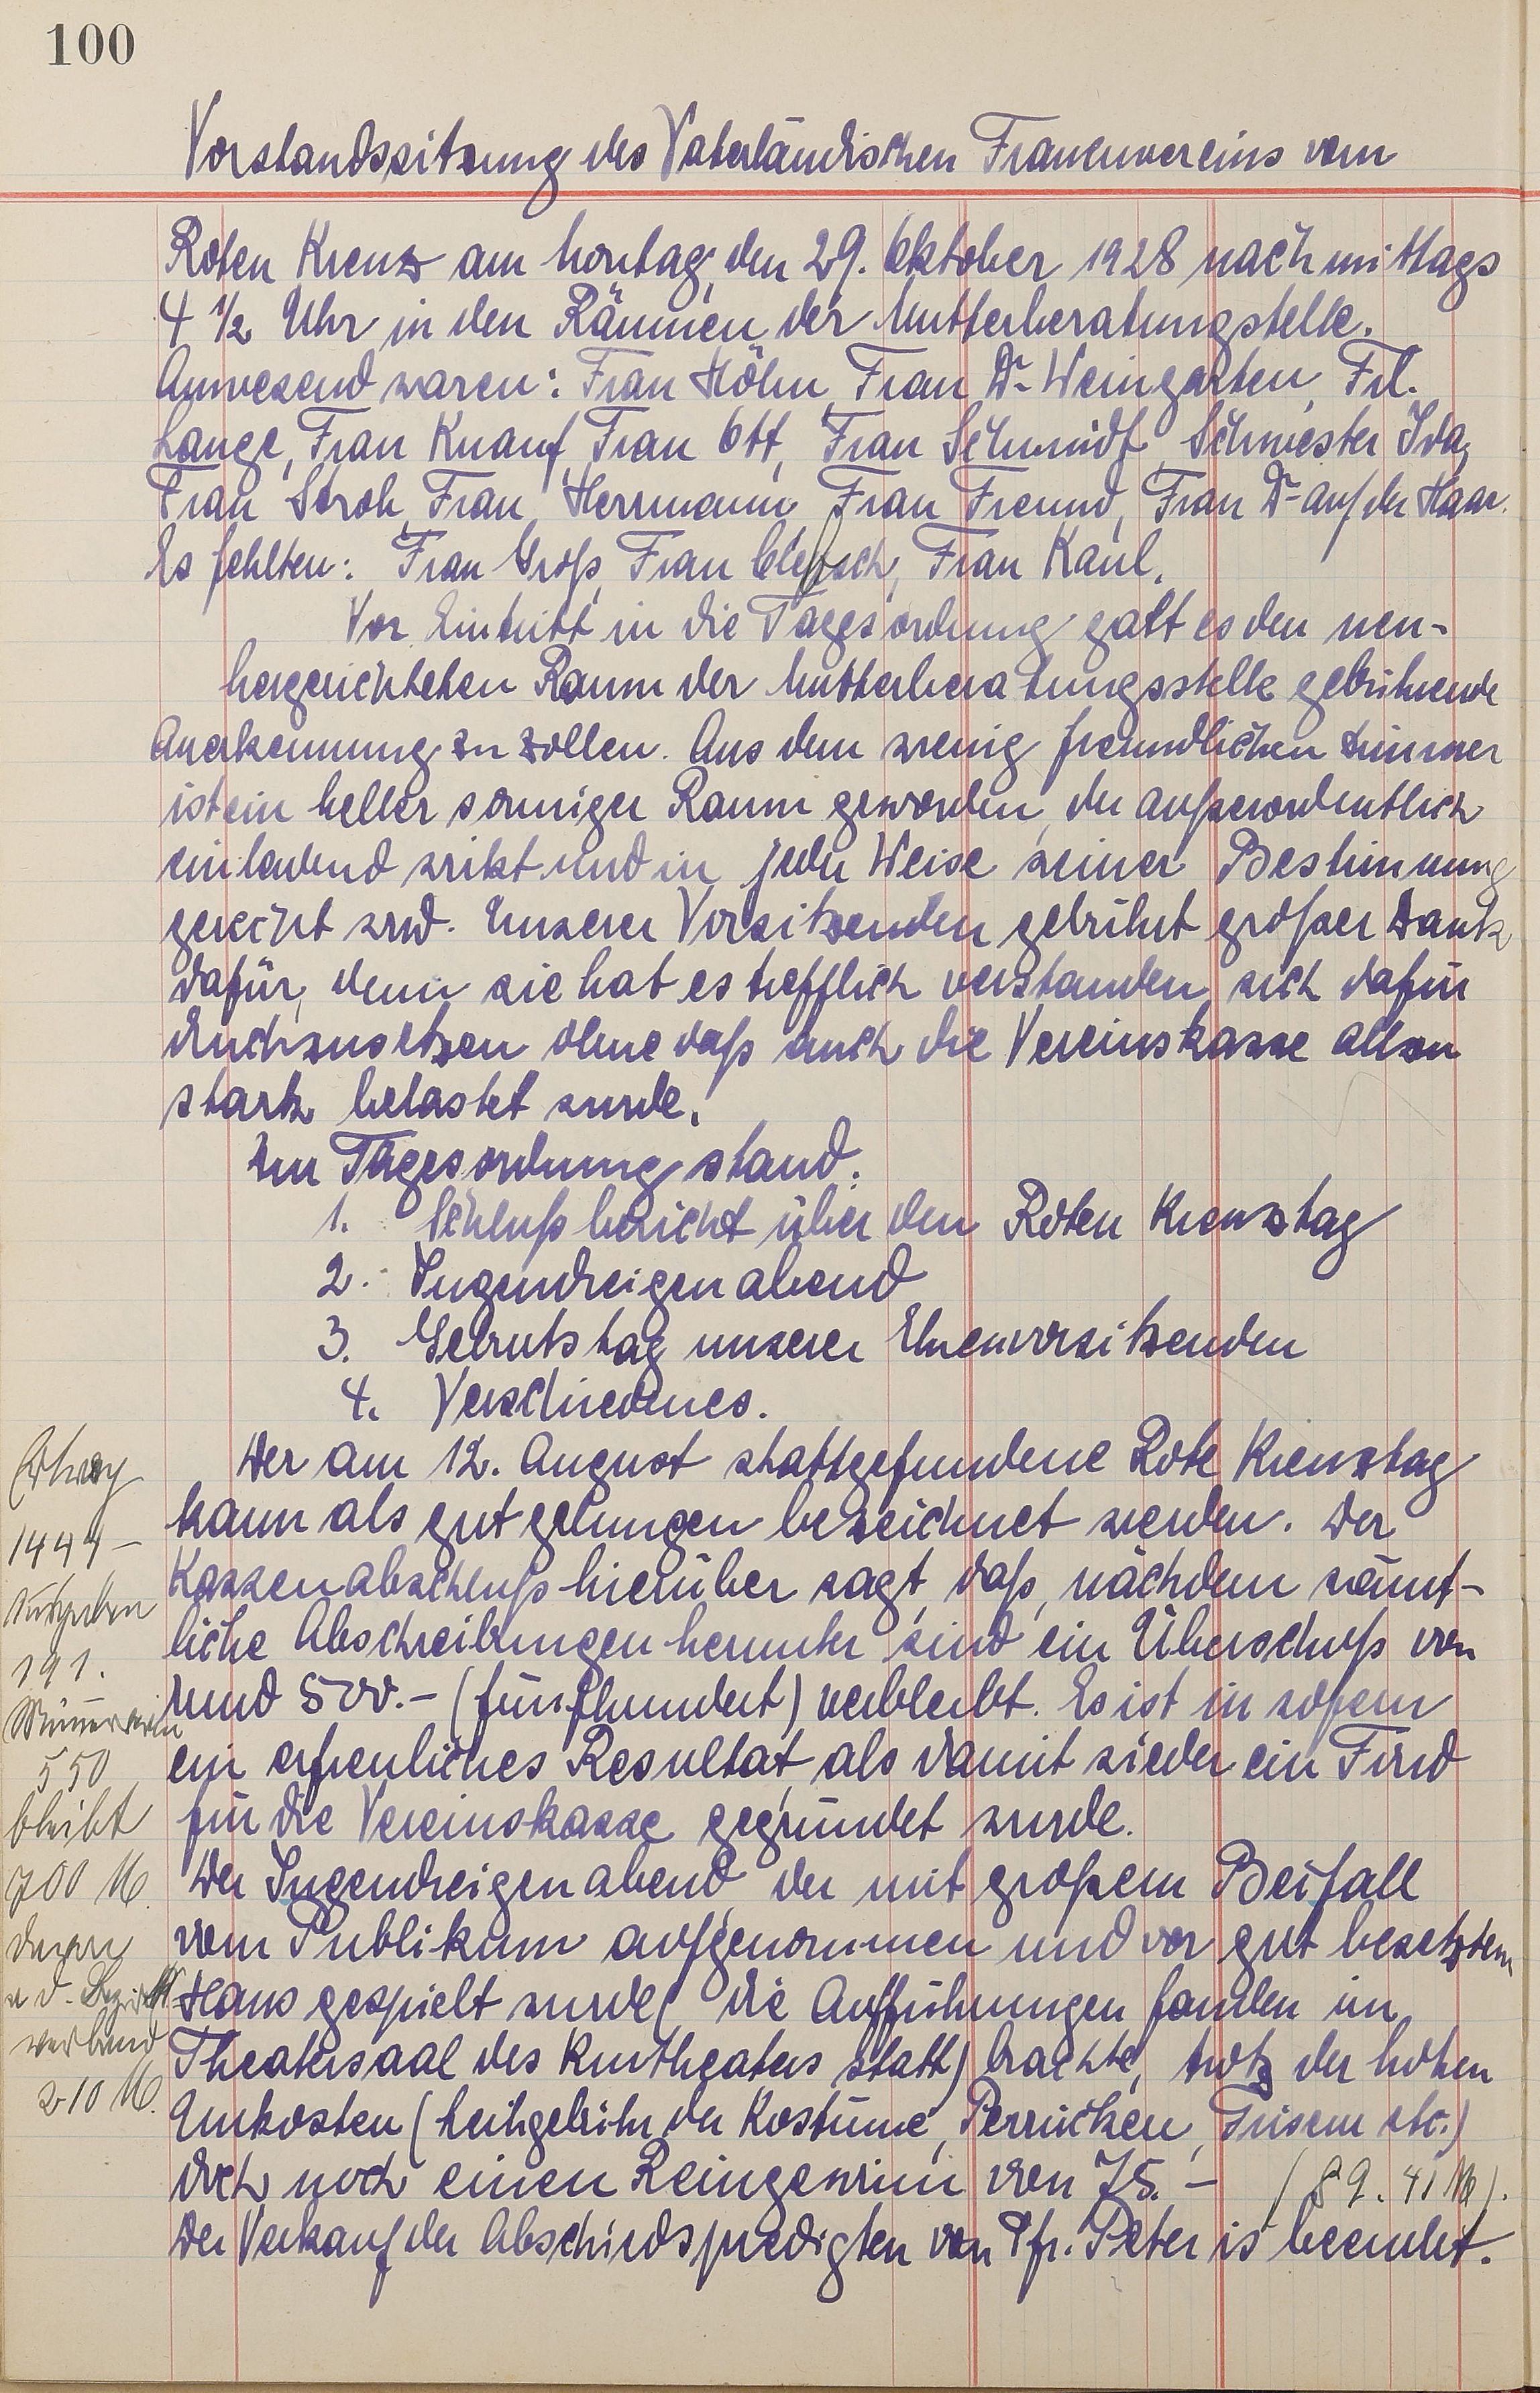 100
Vorstandssitzung des Vaterländischen Frauenvereins vom
Roten Kreuz am Montag, den 29. Oktober 1928 nachmittags
4 1/2 Uhr in den Räumen der Mutterberatungstelle.
Anwesend waren: Frau Höhn, Frau Dr. Weingarten, Frl.
Lange, Frau Knauf, Frau Ott, Frau Schmidt, Schwester Ida,
Frau Stroh, Frau Herrmann, Frau Freund, Frau Dr. auf der Haar.
Es fehlten: Frau Groß, Frau Clebsch, Frau Kaul.
Vor Eintritt in die Tagesordnung galt es den neu-
hergerichteten Raum der Mutterberatungsstelle gebührende
Anerkennung zu zollen. Aus dem wenig freundlichen Zimmer
ist ein heller sonniger Raum geworden, der außerordentlich
einladend wirkt und in jeder Weise seiner Bestimmung
gerecht wird. Unserer Vorsitzenden gebührt großer Dank
dafür, denn sie hat es trefflich verstanden, sich dafür
durchzusetzen ohne daß auch die Vereinskasse allzu
stark belastet wurde.
Zur Tagesordnung stand:
1. Schlußbericht über den Roten Kreuztag
2. Jugendreigenabend
3. Geburtstag unserer Ehrenvorsitzenden
4. Verschiedenes.
Der am 12. August stattgefundene Rote Kreuztag
kann als gut gelungen bezeichnet werden. Der
Kassenabschluß hierüber sagt, daß, nachdem sämt-
liche Abschreibungen herunter sind ein Überschuß von
rund 500.- (fünfhundert) verbleibt. Es ist in sofern
ein erfreuliches Resultat, als damit wieder ein Fond
für die Vereinskasse gegründet wurde.
Der Jugendreigenabend, der mit großem Beifall
vom Publikum aufgenommen und vor gut besetztem
Haus gespielt wurde (die Aufführungen fanden im
Theatersaal des Kurtheaters statt) brachte, trotz der hohen
Unkosten (Leihgebühr der Kostüme, Perrücken, Friseur etc.)
doch noch einen Reingewinn von 75.- (89.41 M).
Der Verkauf der Abschiedspredigten von Pfr. Peter is beendet.
Ertrag
1444 -
Ausgaben
191.
550
bleibt
700 M.
davon
a d. Bezirks
verband
210 M.